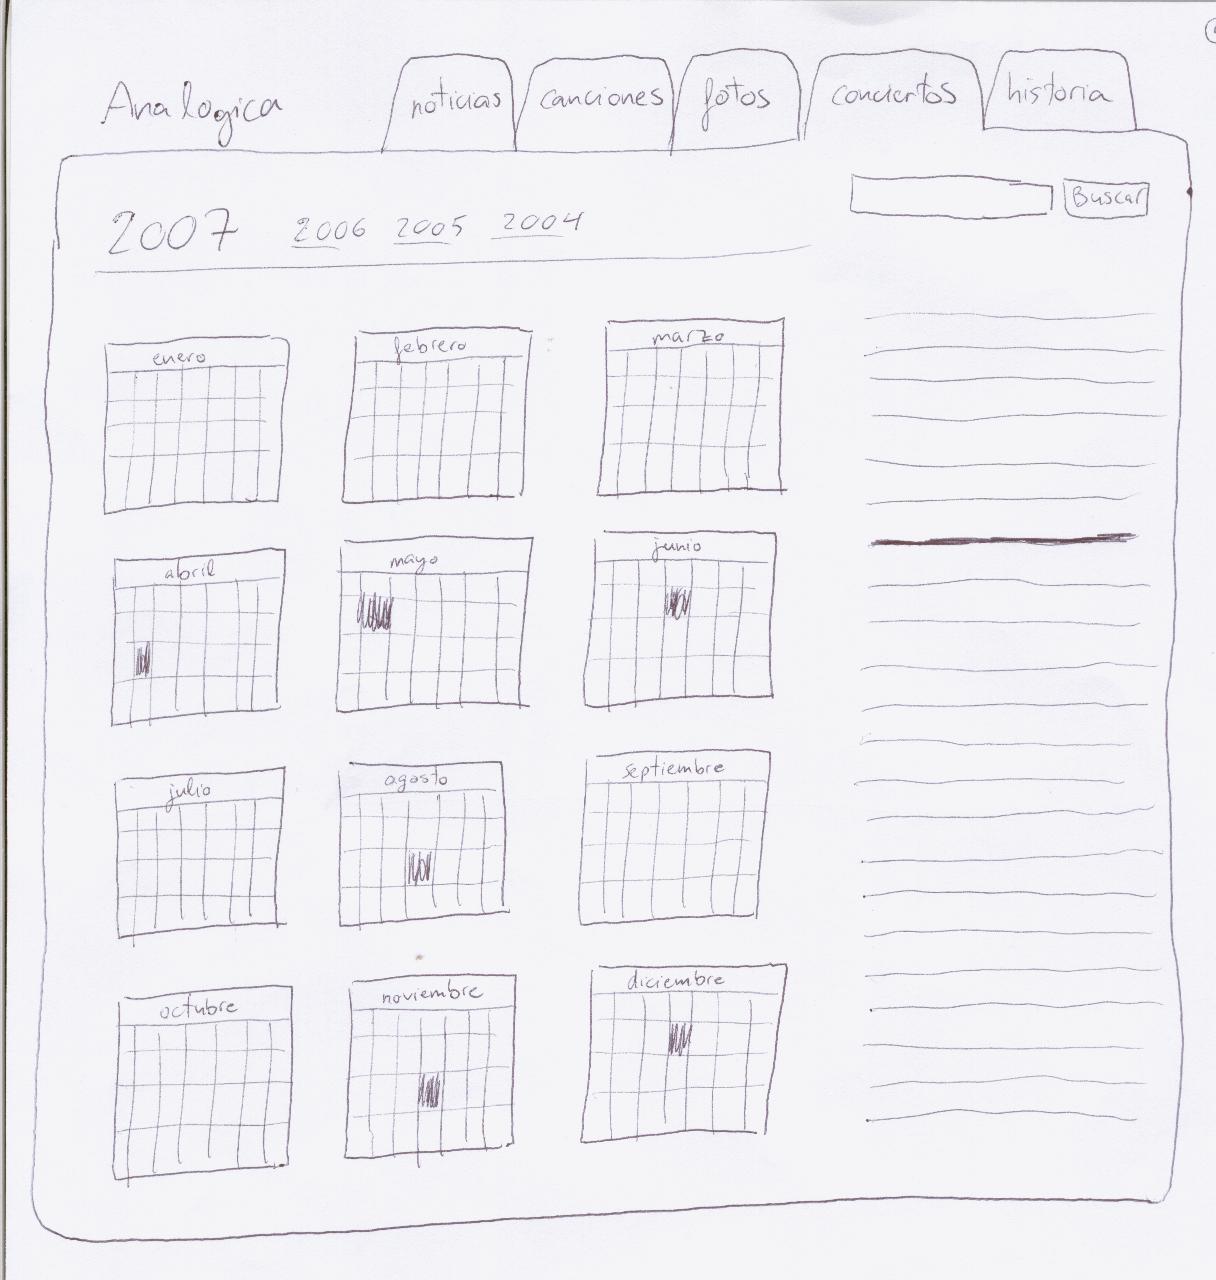 Analogica
noticias canciones fotos conciertos historia
Buscar
2007 2006 2005 2004
enero febrero marzo
abril mayo junio
julio agosto septiembre
octubre noviembre diciembre